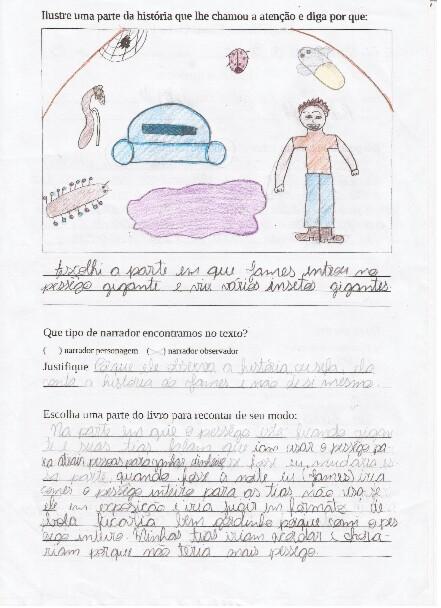 Ilustre uma parte da história que lhe chamou a atenção e diga por que:
Escolhi a parte em que James entrou no
pêssego gigante e viu vários insetos gigantes.
Que tipo de narrador encontramos no texto?
( ) narrador personagem ( ) narrador observador
Justifique Porque ele observa a história ou seja ele
conta a história do James e não de si mesmo.
Escolha uma parte do livro para recontar de seu modo:
Na parte em que o pêssego está ficando gigan
te e suas tias falam que iam usar o pêssego pa-
ra atrair pessoas para ganhar dinheiro se fosse eu mudaria es
sa parte, quando fosse à noite eu (James) iria
comer o pêssego inteiro para as tias não usa-se
ele em exposição e iria fugir em formato de
bola ficaria bem gordinho porque comi o pes
sego inteiro. Minhas tias iriam acordar e chora-
riam porque não teria mais pêssego.